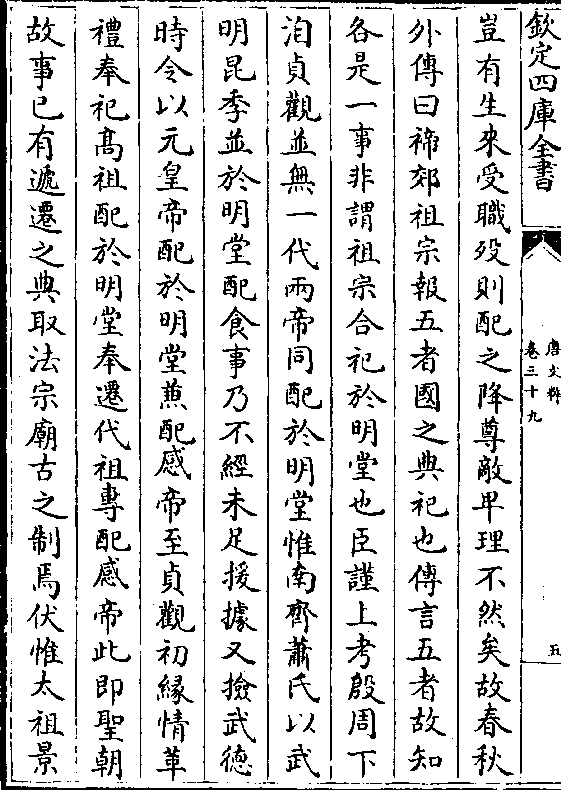 欽定四庫全書
唐文粹
卷三十九
五
豈有生來受職殁則配之降尊敵卑理不然矣故春秋
外傳曰禘郊祖宗報五者國之典祀也傳言五者故知
各是一事非謂祖宗合祀於明堂也臣謹上考殷周下
洎貞觀並無一代兩帝同配於明堂惟南齊蕭氏以武
明昆季並於明堂配食事乃不經未足援據又撿武德
時令以元皇帝配於明堂蒸配感帝至貞觀初緣情革
禮奉祀髙祖配於明堂奉遷代祖專配感帝此即聖朝
故事已有遞遷之典取法宗廟古之制焉伏惟太祖景